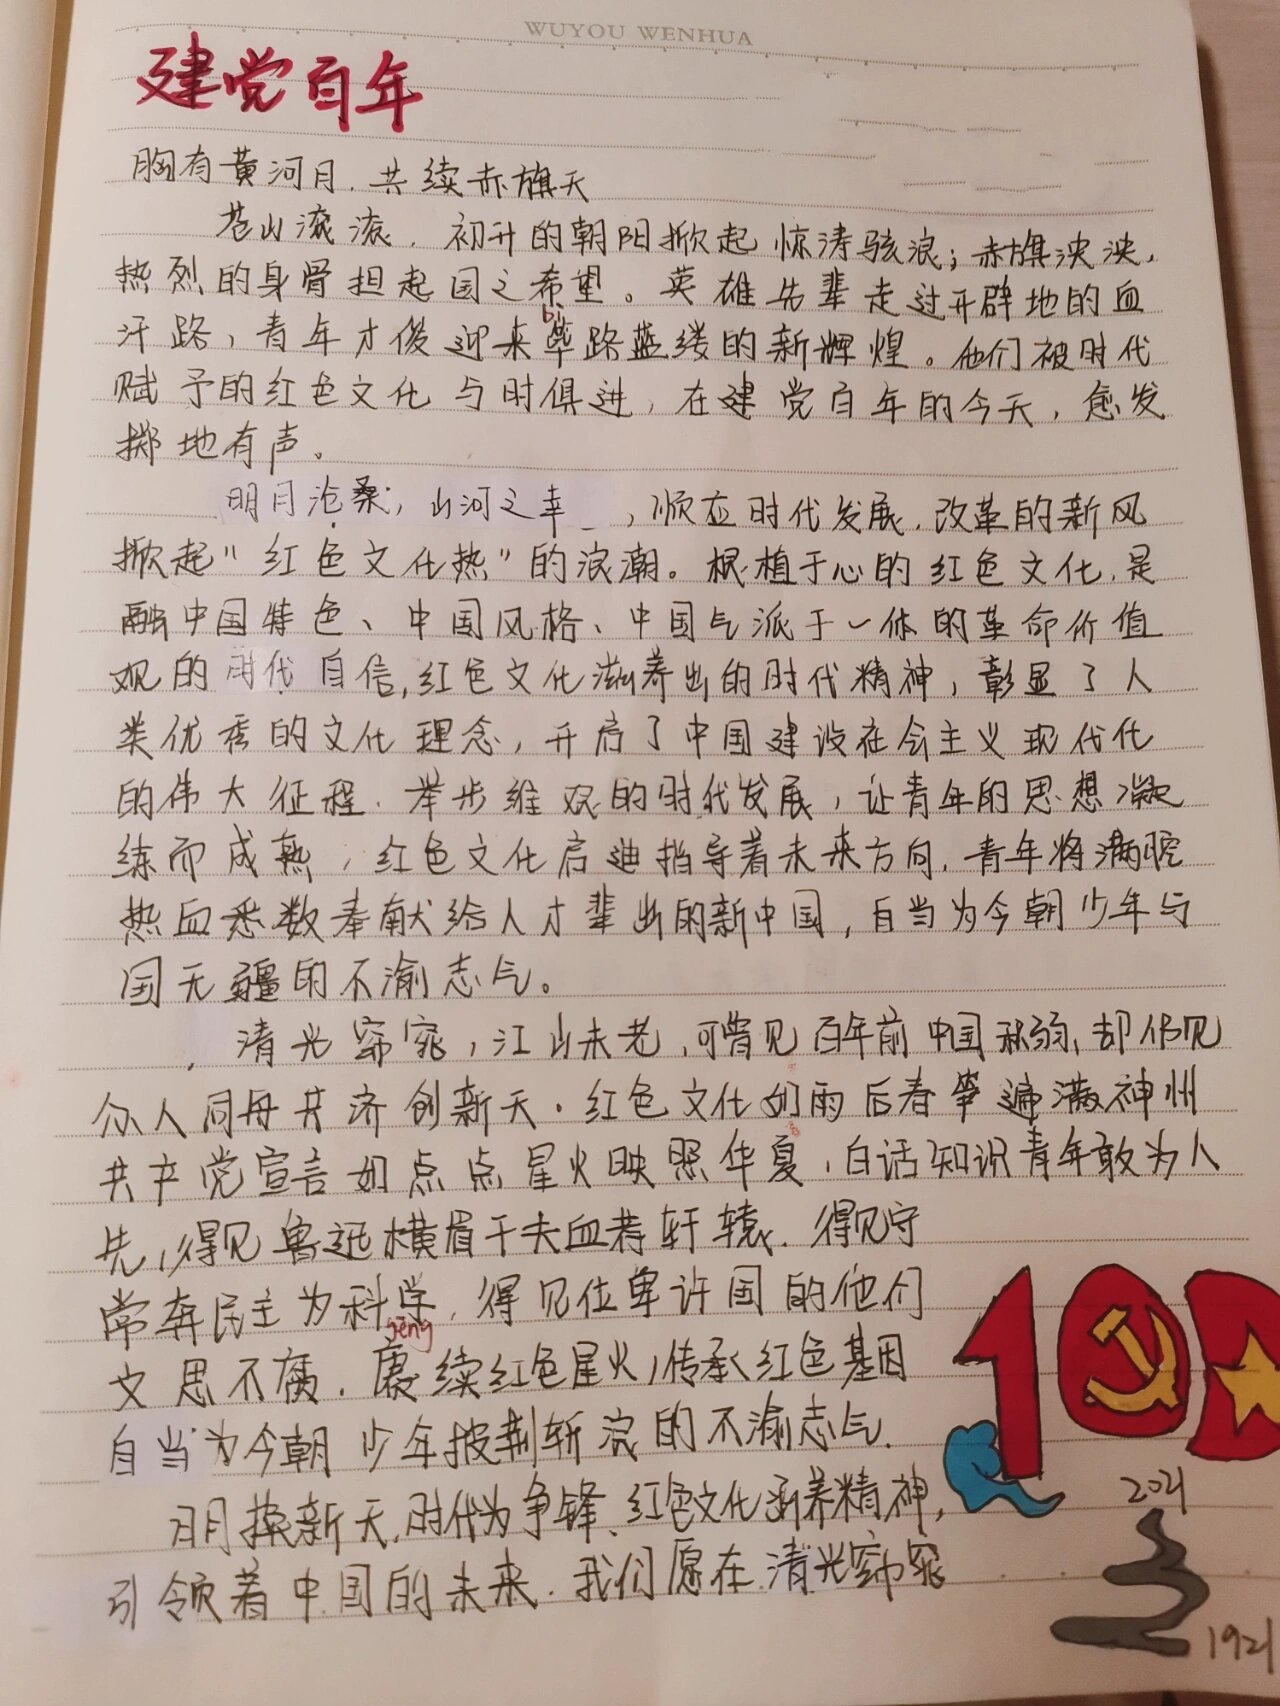 WUYOU WENHUA
建党百年
胸有黄河月，共续赤旗天
苍山滚滚，初升的朝阳掀起惊涛骇浪；赤旗泱泱，
热烈的身骨担起国之希望。英雄先辈走过开辟地的血
bì
汗路，青年才俊迎来筚路蓝缕的新辉煌。他们被时代
赋予的红色文化与时俱进，在建党百年的今天，愈发
掷地有声。
明月沧桑，山河之幸，顺应时代发展，改革的新风
掀起“红色文化热”的浪潮。根植于心的红色文化，是
融中国特色、中国风格、中国气派于一体的革命价值
观的时代自信，红色文化滋养出的时代精神，彰显了人
类优秀的文化理念，开启了中国建设社会主义现代化
的伟大征程。举步维艰的时代发展，让青年的思想凝
练而成熟，红色文化启迪指导着未来方向，青年将满腔
热血悉数奉献给人才辈出的新中国，自当为今朝少年与
国无疆的不渝志气。
清光窈窕，江山未老，可曾见百年前中国积弱，却仍见
众人同舟共济创新天。红色文化如雨后春笋遍满神州
共产党宣言如点点星火映照华夏，白话知识青年敢为人
先，得见鲁迅横眉千夫血荐轩辕，得见守
常奔民主为科学，得见位卑许国的他们
gēng
文思不腐，赓续红色星火，传承红色基因
自当为今朝少年披荆斩浪的不渝志气。
日月换新天，时代为争锋，红色文化涵养精神，
引领着中国的未来。我们愿在清光窈窕
100
2021
1921